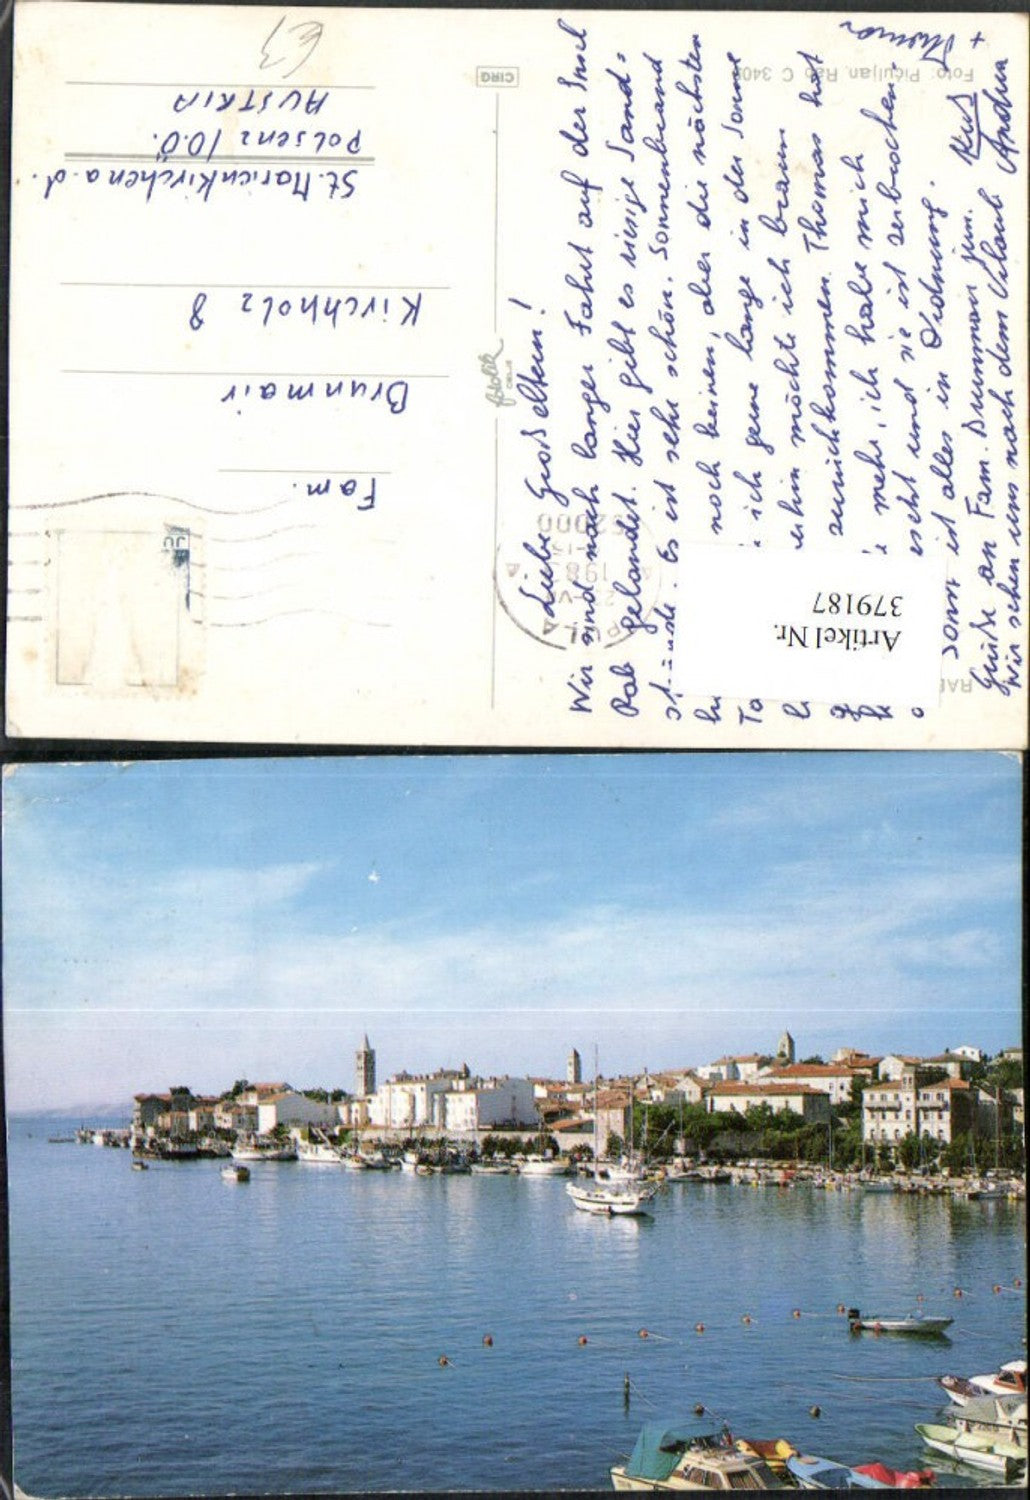 Liebe Großeltern!
Wir sind nach langer Fahrt auf der Insel
Rab gelandet. Hier gibt es riesige Sand-
strände. Es ist sehr schön. Sonnenbrand
noch keinen, aber die nächsten
Ta ich gerne lange in der Sonne
möchte ich braun
zurückkommen. Thomas hat
mehr, ich habe mich
und sie ist zerbrochen,
sonst ist alles in Ordnung.
Grüße an Fam. Brunmair jun.
Wir sehen uns nach dem Urlaub
Kuß
Andrea
+ Thomas
Fam.
Brunmair
Kirchholz 8
St. Marienkirchen a. d.
Polsenz /O.Ö.
AUSTRIA
€3
Artikel Nr.
379187
PULA
52000
Foto: Pičuljan, Rab C 340
RAB
CIRG
fotolik
CELJE
JU